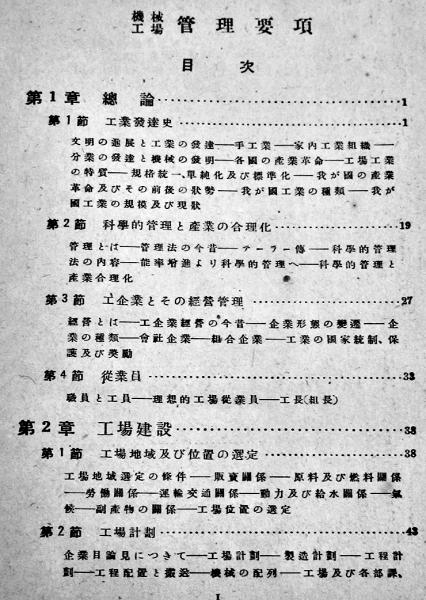 機械工場 管理要項
目次
第1章 總論 1
第1節 工業發達史 1
文明の進展と工業の發達──手工業──家内工業組織──
分業の發達と機械の發明──各國の產業革命──工場工業
の特質──規格統一、單純化及び標準化──我が國の產業
革命及びその前後の狀勢──我が國工業の種類──我が
國工業の規模及び現狀
第2節 科學的管理と產業の合理化 19
管理とは──管理法の今昔──テーラー傳──科學的管理
法の內容──能率增進より科學的管理へ──科學的管理と
產業合理化
第3節 工企業とその經營管理 27
經營とは──工企業經營の今昔──企業形態の變遷──企
業の種類──會社企業──組合企業──工業の國家統制、保
護及び奬勵
第4節 從業員 33
職員と工員──理想的工場從業員──工長(組長)
第2章 工場建設 38
第1節 工場地域及び位置の選定 38
工場地域選定の條件──販賣關係──原料及び燃料關係
──勞働關係──運輸交通關係──動力及び給水關係──氣
候──副產物の關係──工場位置の選定
第2節 工場計劃 43
企業目論見について──工場計劃──製造計劃──工程計
劃──工程配置と搬送──機械の配列──工場及び各部課、
1